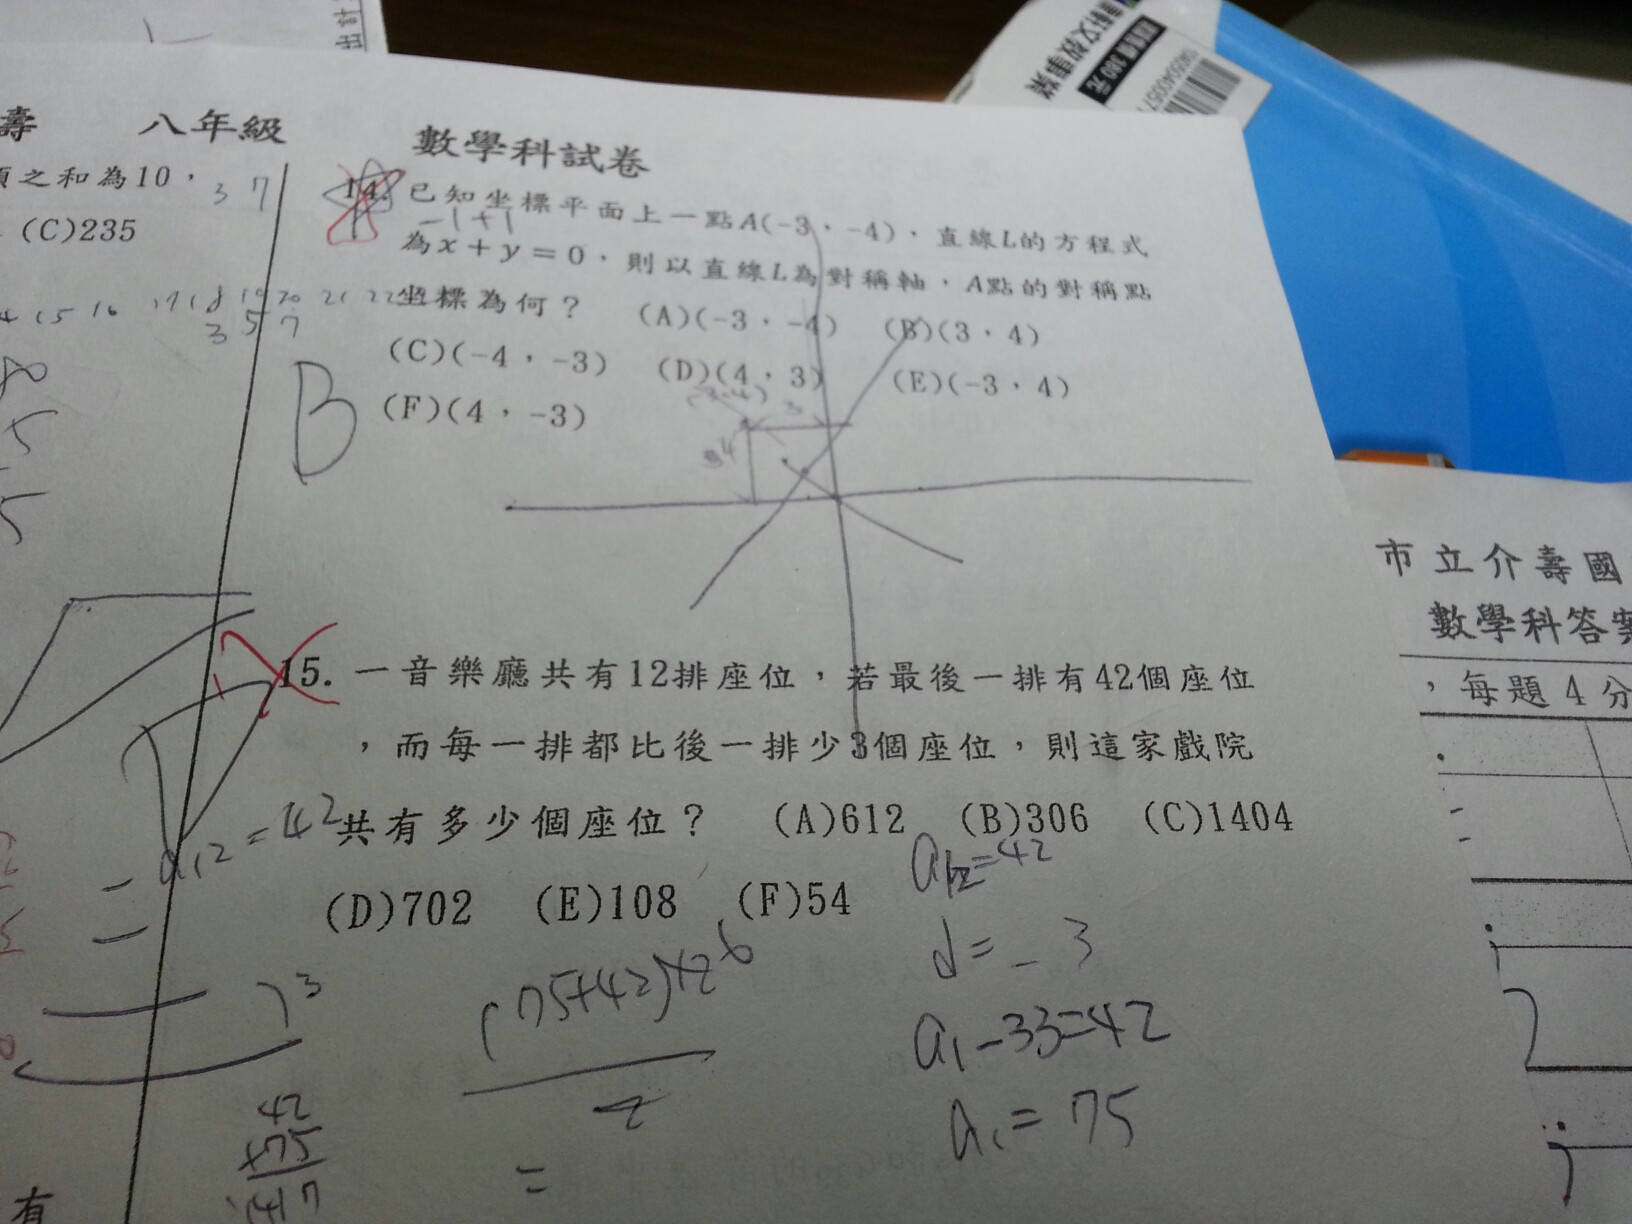 壽 八年級 數學科試卷
項之和為10,
(C)235
3 7
14. 已知坐標平面上一點A(-3,-4),直線L的方程式
-1+1
為x+y=0,則以直線L為對稱軸,A點的對稱點
坐標為何? (A)(-3,-4) (B)(3,4)
(C)(-4,-3) (D)(4,3) (E)(-3,4)
(F)(4,-3)
15 16 17 18 19 20 21 22
3 5 7
B
3
4
15. 一音樂廳共有12排座位,若最後一排有42個座位
,而每一排都比後一排少3個座位,則這家戲院
共有多少個座位? (A)612 (B)306 (C)1404
(D)702 (E)108 (F)54
a12=42
a12=42
d=-3
a1-33=42
a1=75
(75+42)12 6
2
=
42
+75
117
有
市立介壽國
數學科答案
,每題4分
380元